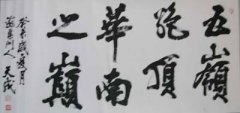 五嶺
絶頂
華南
之巔
癸未歲夏月
天成